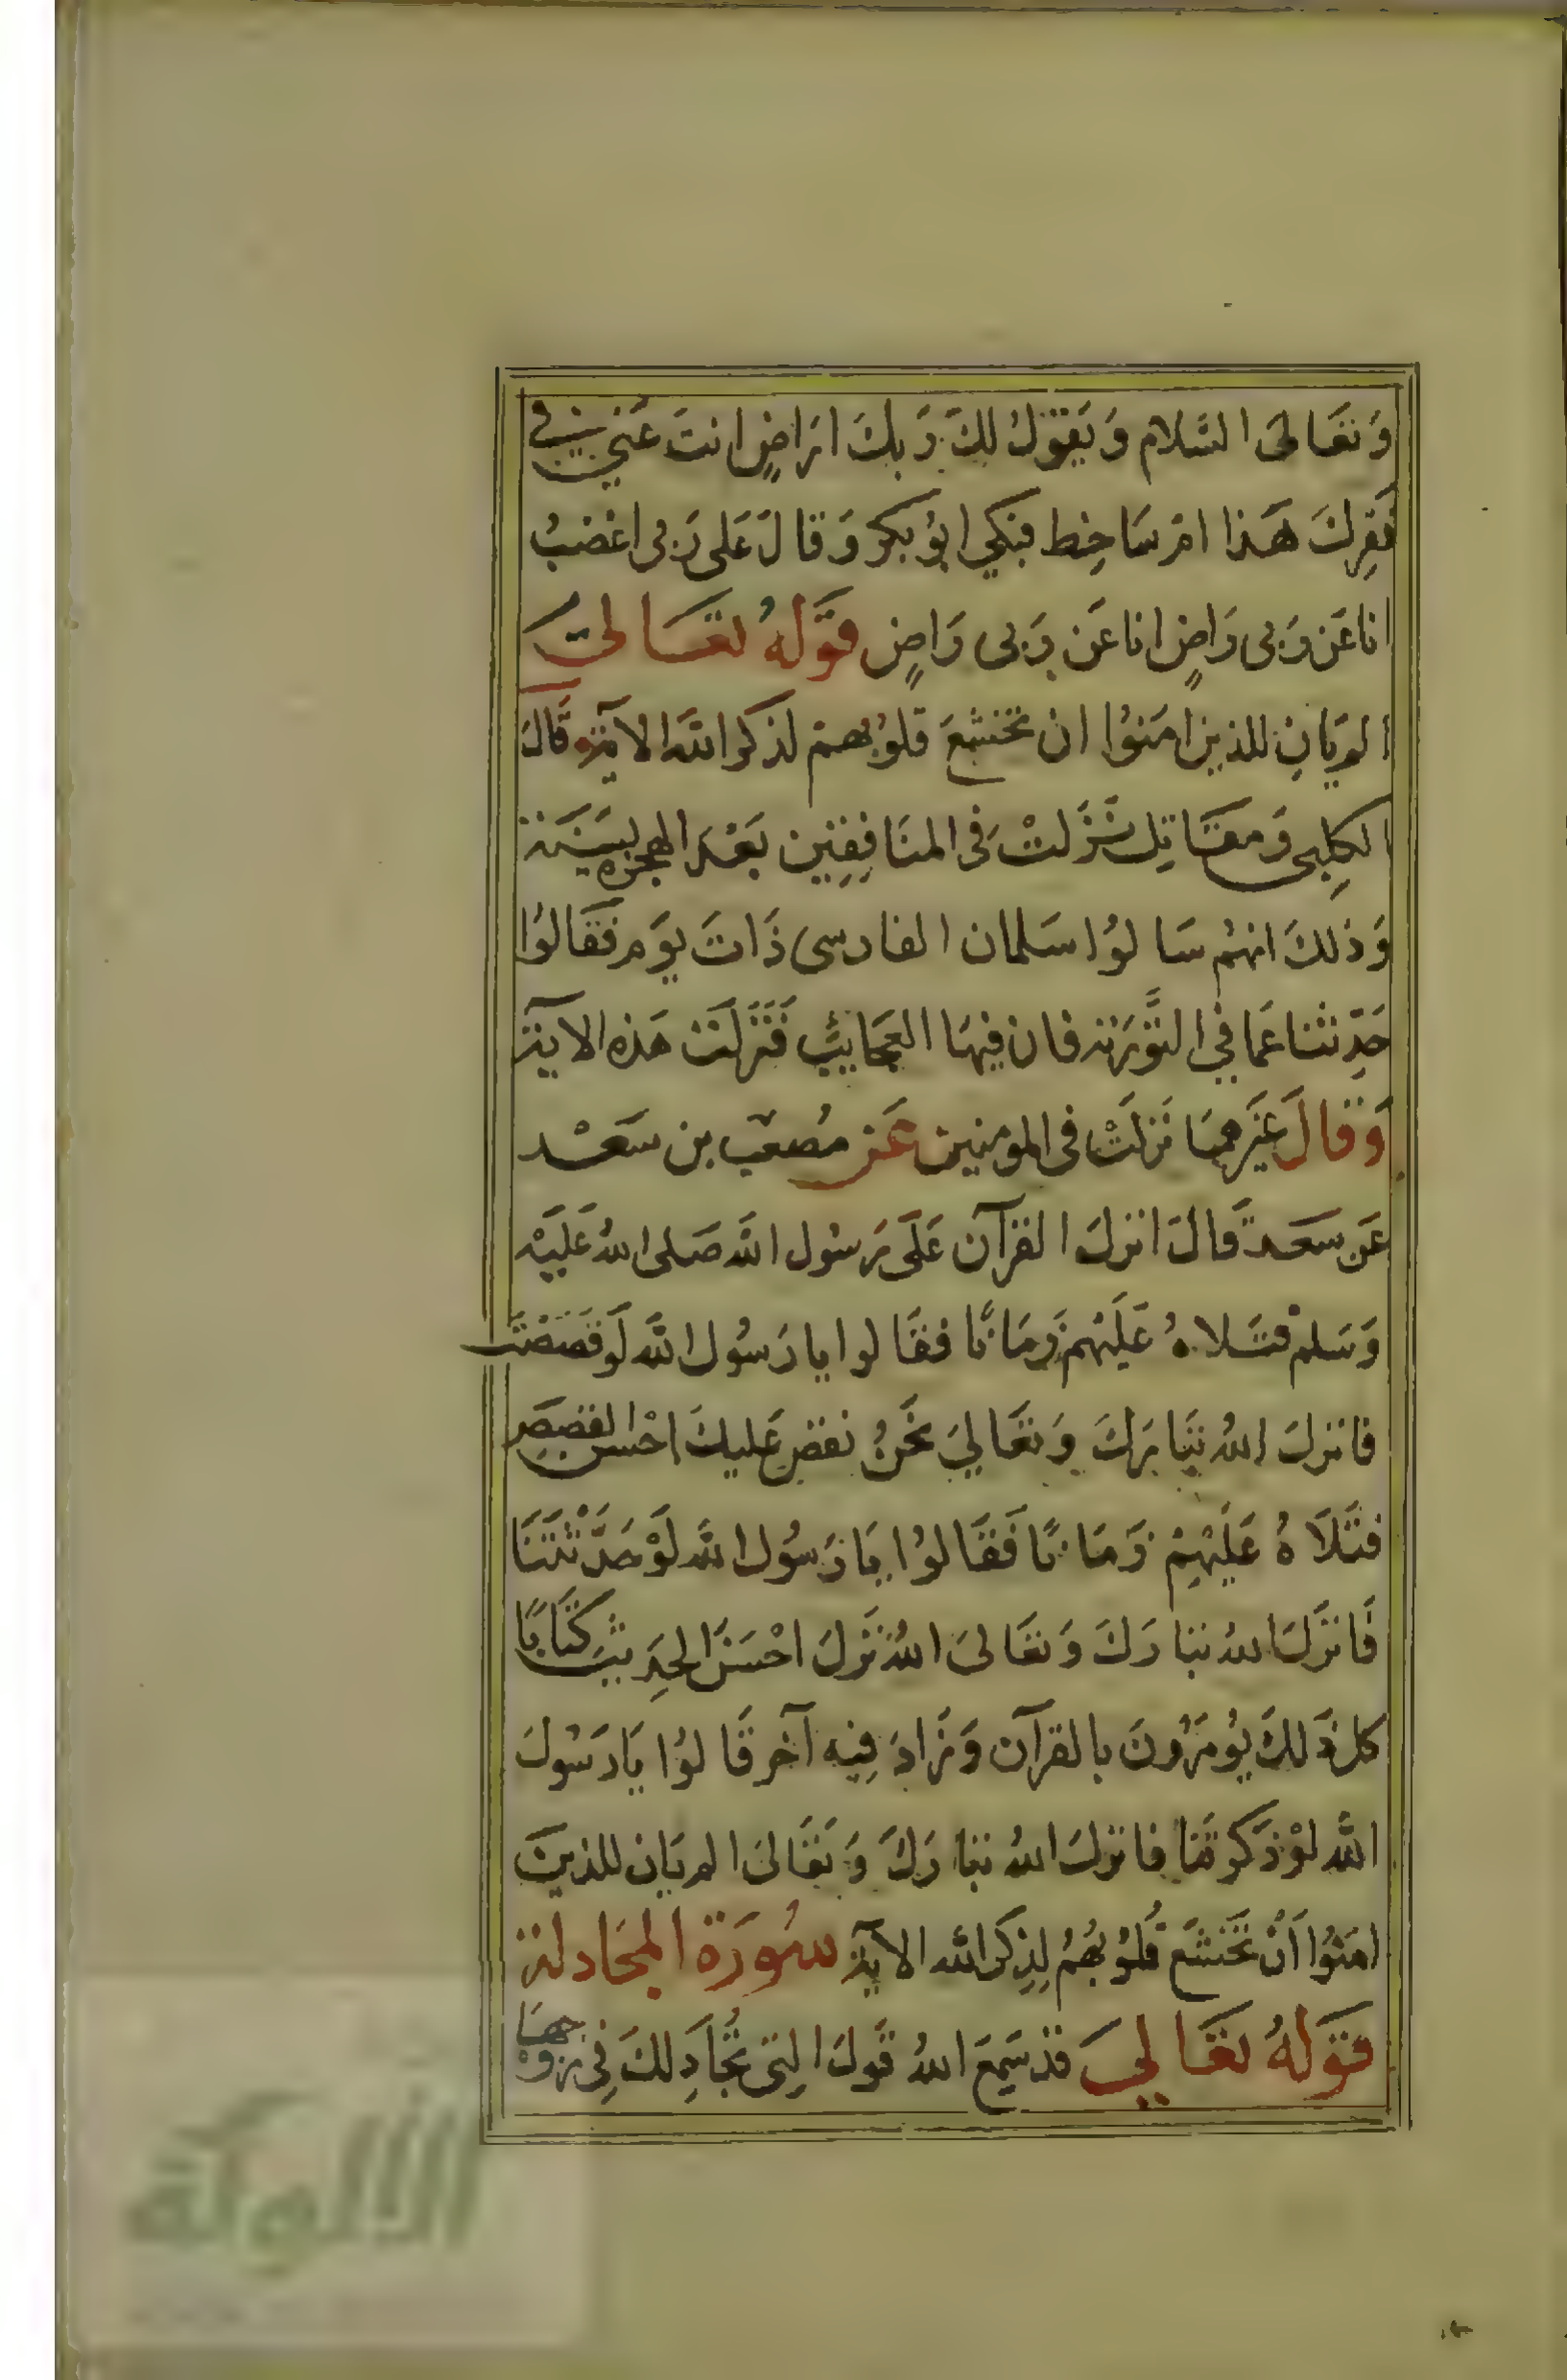 وَتعَالىَ السَّلام وَيَقوُلُ لكَ رَبكَ ارَاضٍ انتَ عَني في
فقرِكَ هَذا امْ سَاخِط فبَكي ابُو بكر وَقالَ عَلى رَبى اغضبُ
انا عَن رَبى رَاضٍ انا عَن رَبى رَاضٍ قوَّلهُ تعَالى
الم يَانِ للذين امَنوُا ان تخشعَ قلوُبهمْ لذكر الله الآية قَالَ
الكِلبى وَمقَاتِل نَزَلتْ فى المنَافِقِين بَعْد الهجرة بسَنَة
وَذلكَ انهُم سَالوُا سَلمان الفارسى ذَاتَ يوَم فقَالوُا
حَدِّثنا عَما في التَّوْرَية فان فيهَا العجَايبَ فَنَزلَتْ هَذه الآية
وَقالَ غَيْرهمَا نَزلَتْ فى المومنين عَن مُصعَب بن سَعْد
عَن سَعَد قَالَ انزلَ القرآن عَلَى رَسُول الله صَلى اللهُ عَلَيْه
وَسَلمْ فتَلاهُ عَلَيْهم زَمَانًا فقَالوا يا رَسُول الله لَو قصَصْتَ
فانزلَ اللهُ تبَارَكَ وَتعَاليَ نحَنُ نقص عَليكَ احْسن القصَصِ
فتَلَاهُ عَلَيْهِمْ زَمَانًا فَقَالوُا يَا رَسُول الله لَوْ حَدَّثْتَنَا
فَانزَلَ اللهُ تبارَكَ وَتعَالىَ اللهُ نَزلَ احْسَنَ الحَدِيث كتَابًا
كل ذَلكَ يُومَرُونَ بالقرآن وَزَادَ فِيه آخر قَالوُا يَا رَسُولَ
الله لوْ ذَكرتَنا فانزلَ اللهُ تبارَكَ وَتعَالىَ الم يَان للذينَ
امَنوُا اَنْ تَخشَع قُلوُبُهُمْ لِذِكرِ الله الآية سُورَة المجَادلة
قوَلهُ تعَاليَ قدْ سَمِعَ اللهُ قَولَ التِى تُجَادِلكَ فِى زَوْجهَا
الألوكة